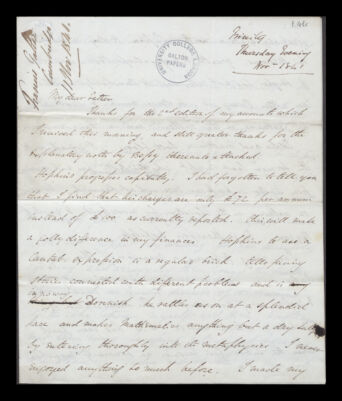 146
Trinity
Thursday Evening
Novr 1841
Francis Galton
Cambridge
Novr 1841.
UNIVERSITY COLLEGE LONDON
GALTON PAPERS
My dear Father
Thanks for the 2nd edition of my accounts which
I received this morning and still greater thanks for the
explanatory notes by Bessy thereunto attached
Hopkins progresses capitally. I had forgotten to tell you
that I find that his charges are only £72 per annum
instead of £100 as currently reported. this will make
a jolly difference in my finances Hopkins to use a
Cantab expression is a regular brick tells funny
stories connected with different problems and is
Donnish he rattles us on at a splendid
pace and makes Mathematics anything but a dry subject
by entering thoroughly into its metaphysics. I never
enjoyed anything so much before. I made my